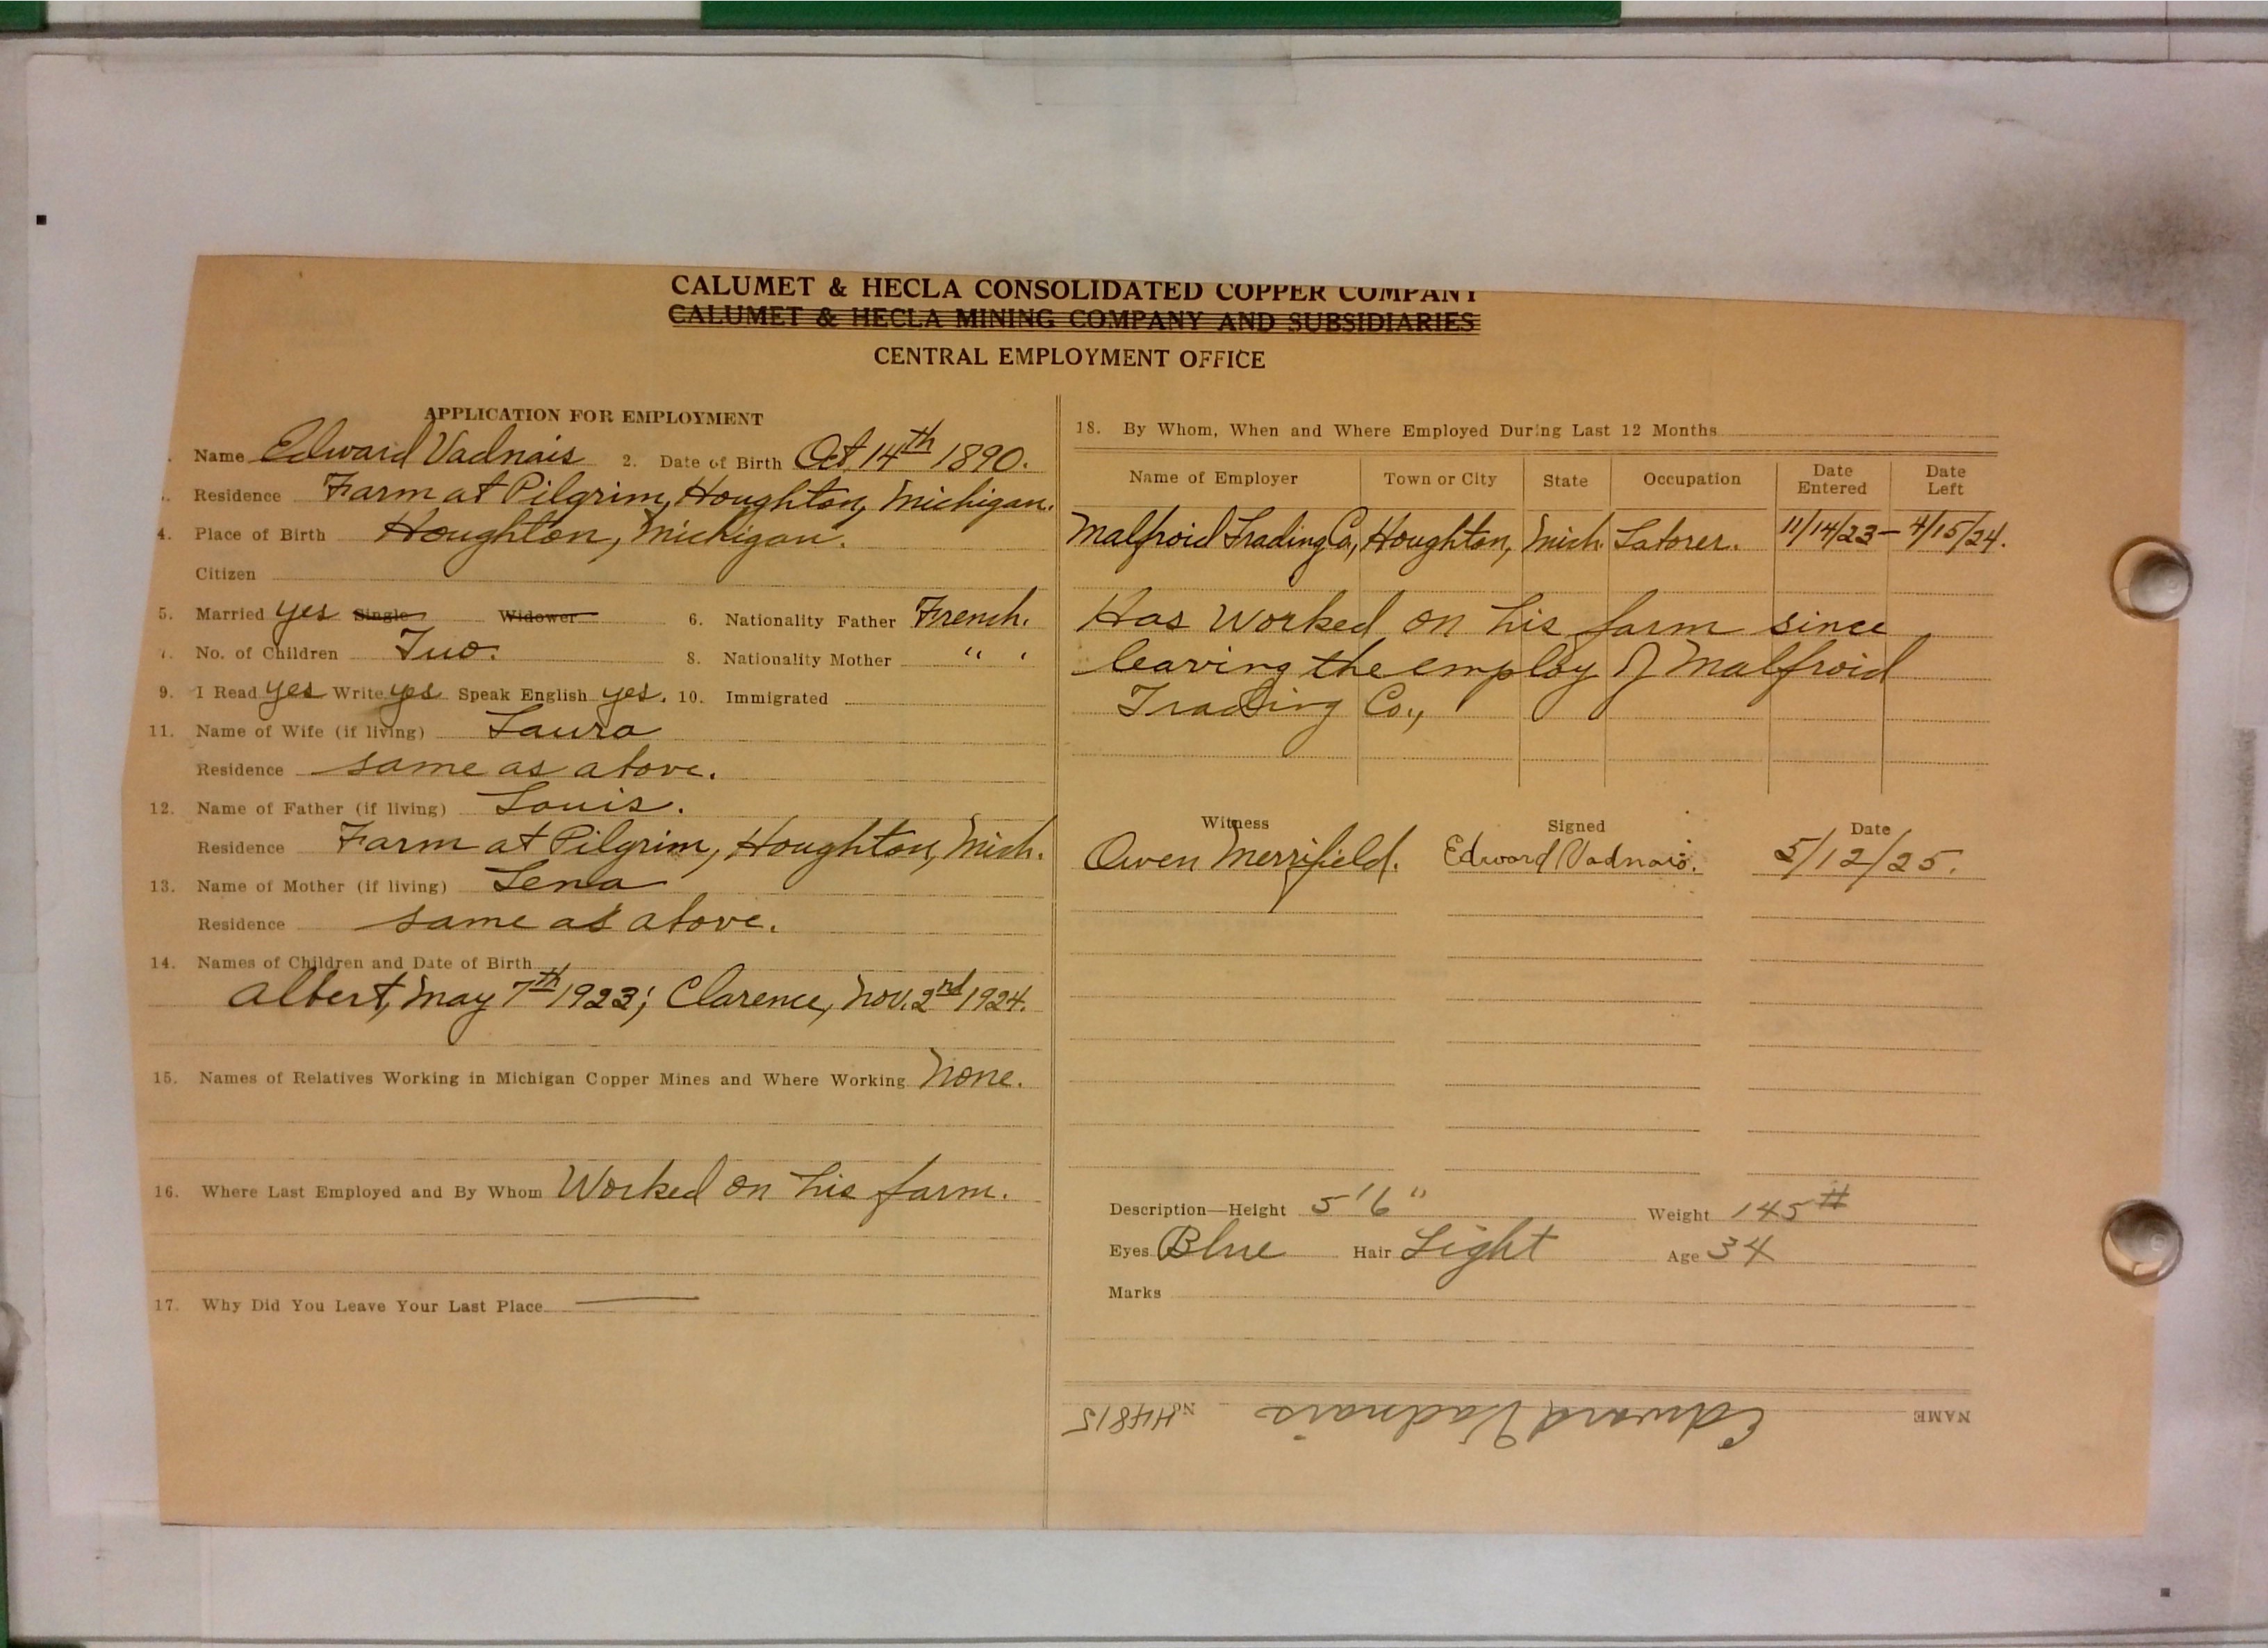 CALUMET & HECLA CONSOLIDATED COPPER COMPANY
CALUMET & HECLA MINING COMPANY AND SUBSIDIARIES
CENTRAL EMPLOYMENT OFFICE
APPLICATION FOR EMPLOYMENT
. Name Edward Vadnais 2. Date of Birth Oct. 14th 1890.
. Residence Farm at Pilgrim, Houghton, Michigan.
4. Place of Birth Houghton, Michigan.
Citizen
5. Married yes Single Widower 6. Nationality Father French.
7. No. of Children Two. 8. Nationality Mother " .
9. I Read yes Write yes Speak English yes. 10. Immigrated
11. Name of Wife (if living) Laura
Residence same as above.
12. Name of Father (if living) Louis.
Residence Farm at Pilgrim, Houghton, Mich.
13. Name of Mother (if living) Lena
Residence same as above.
14. Names of Children and Date of Birth
Albert, May 7th 1923; Clarence, Nov. 2nd 1924.
15. Names of Relatives Working in Michigan Copper Mines and Where Working None.
16. Where Last Employed and By Whom Worked on his farm.
17. Why Did You Leave Your Last Place —
18. By Whom, When and Where Employed During Last 12 Months
Name of Employer Town or City State Occupation Date Entered Date Left
Malfroid Trading Co, Houghton, Mich. Laborer. 11/14/23 - 4/15/24.
Has worked on his farm since
leaving the employ of Malfroid
Trading Co.,
Witness Signed Date
Owen Merrifield. Edward Vadnais. 5/12/25.
Description—Height 5'6" Weight 145#
Eyes Blue Hair Light Age 34
Marks
NAME Edward Vadnais No. 44815